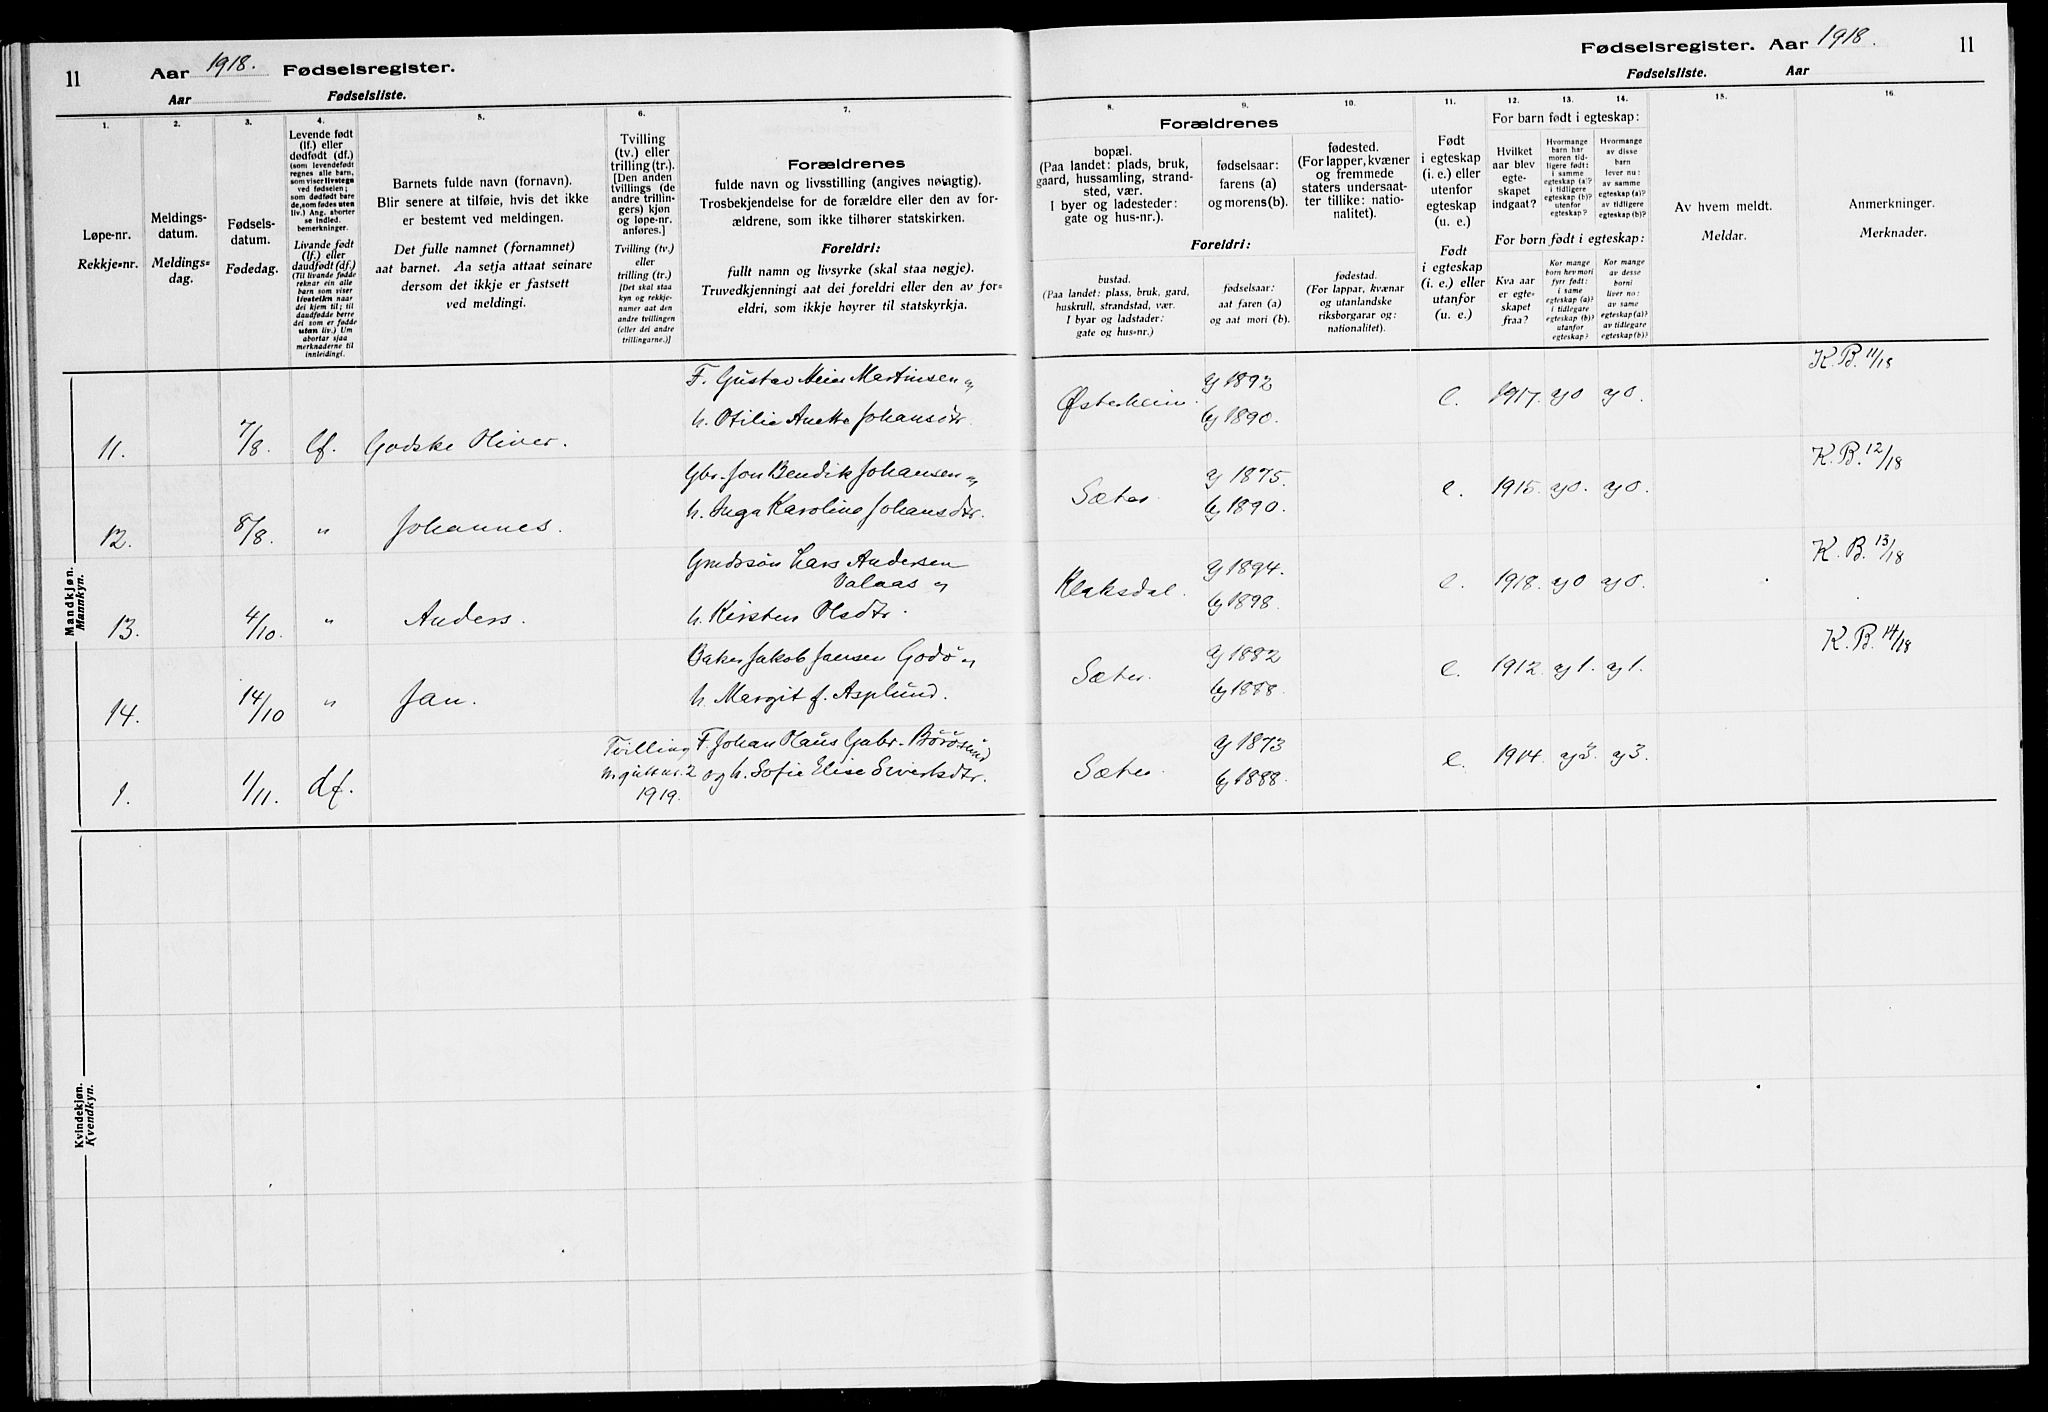 11
Aar 1918. Fødselsregister.
Aar Fødselsliste.
1.
Løpe-nr.
Rekkje-nr.
2.
Meldings-
datum.
Meldings-
dag.
3.
Fødsels-
datum.
Fødedag.
4.
Levende født
(lf.) eller
dødfødt (df.)
(som levendefødt
regnes alle barn,
som viser livstegn
ved fødselen;
som dødfødt bare
de, som fødes uten
liv.) Ang. aborter
se indled.
bemerkninger.
Livande født
(lf.) eller
daudfødt (df.)
(Til livande fødde
reknar ein alle
barn som viser
livsteikn naar
dei kjem til; til
daudfødde berre
dei som er fødde
utan liv.) Um
abortar sjaa
merknaderne til
innleidingi.
5.
Barnets fulde navn (fornavn).
Blir senere at tilføie, hvis det ikke
er bestemt ved meldingen.
Det fulle namnet (fornamnet)
aat barnet. Aa setja attaat seinare
dersom det ikkje er fastsett
ved meldingi.
6.
Tvilling
(tv.) eller
trilling (tr.).
[Den anden
tvillings (de
andre trillin-
gers) kjøn
og løpe-nr.
anføres.]
Tvilling (tv.)
eller
trilling (tr.)
[Det skal staa
kyn og rekkje-
numer aat den
andre tvillingen
(eller dei andre
trillingarne.)]
7.
Forældrenes
fulde navn og livsstilling (angives nøiagtig).
Trosbekjendelse for de forældre eller den av for-
ældrene, som ikke tilhører statskirken.
Foreldri:
fullt namn og livsyrke (skal staa nøgje).
Truvedkjenningi aat dei foreldri eller den av for-
eldri, som ikkje høyrer til statskyrkja.
Mandkjøn.
Mannkyn.
F. Gustav Meier Martinsen og
11. 7/8. lf. Godske Oliver. h. Otilie Anette Johansdtr.
Gbr. Jon Bendik Johansen og
12. 8/8. " Johannes. h. Inga Karoline Johansdtr.
Grndssøn Lars Andersen
Valaas og
13. 4/10. " Anders. h. Kirsten Olsdtr.
Baker Jakob Jansen Godø og
14. 14/10 " Jan. h. Margit f. Asplund.
Tvilling F. Johan Olaus Gabr. Børøsund
nr. 2 og h. Sofie Elise Sivertsdtr.
1. 1/11. df. 1919.
Kvindekjøn.
Kvendkyn.
Fødselsregister. Aar 1918. 11
Fødselsliste. Aar
8.
Forældrenes
bopæl.
(Paa landet: plads, bruk,
gaard, hussamling, strand-
sted, vær.
I byer og ladesteder:
gate og hus-nr.).
Foreldri:
bustad.
(Paa landet: plass, bruk, gard,
huskrull, strandstad, vær.
I byar og ladstader:
gate og hus-nr.)
9.
fødselsaar:
farens (a)
og morens (b).
fødselsaar:
aat faren (a)
og aat mori (b).
10.
fødested.
(For lapper, kvæner
og fremmede
staters undersaat-
ter tillike: natio-
nalitet).
fødestad.
(For lappar, kvænar
og utanlandske
riksborgarar og:
nationalitet).
11.
Født
i egteskap
(i. e.) eller
utenfor
egteskap
(u. e.)
Født
i egteskap
(i. e.) eller
utanfor
(u. e.)
12. 13. 14.
For barn født i egteskap:
Hvilket
aar blev
egte-
skapet
indgaat?
Hvormange
barn har
moren tid-
ligere født:
i samme
egteskap (a)?
i tidligere
egteskap (b)?
utenfor
egteskap?
Hvormange
av disse
barn
lever nu:
av samme
egteskap (a)?
av tidligere
egteskap (b)?
For born født i egteskap:
Kva aar
er egte-
skapet
fraa?
Kor mange
born hev mori
fyrr født:
i same
egteskap (a)?
i tidlegare
egteskap (b)?
utanfor
egteskap?
Kor mange
av desse
borni
liver no:
av same
egteskap (a)?
av tidlegare
egteskap (b)?
15.
Av hvem meldt.
Meldar.
16.
Anmerkninger.
Merknader.
Østerheim. a) 1892 e. 1917. a) 0 a) 0. K. B. 11/18
b) 1890.
Sæter a) 1875. e. 1915. a) 0. a) 0. K. B. 12/18
b) 1890.
Klaksdal. a) 1894. e. 1918. a) 0 a) 0. K. B. 13/18
b) 1898.
Sæter. a) 1882 e. 1912. a) 1. a) 1. K. B. 14/18
b) 1888.
Sæter a) 1873 e. 1914. a) 3. a) 3.
b) 1888.